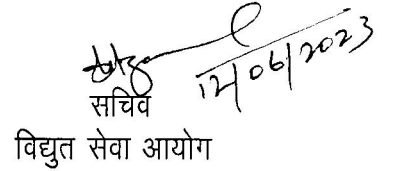 12/06/2023
सचिव
विद्युत सेवा आयोग